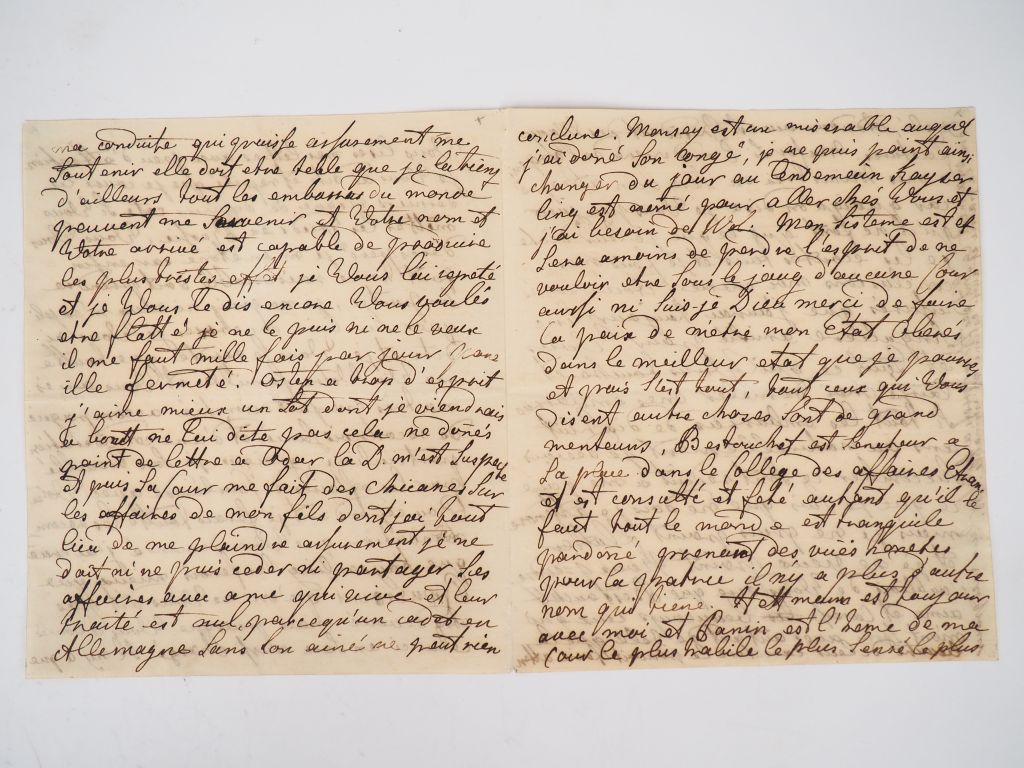 ma conduite qui puisse assurement me
soutenir elle doit etre telle que je la tiens
d'ailleurs tout les embarras du monde
peuvent me survenir et Votre nom et
Votre arrivé est capable de produire
les plus tristes effet je Vous l'ai repeté
et je Vous le dis encore Vous voulés
etre flatté je ne le puis ni ne le veux
il me faut mille fois par jour
ille fermeté. Osten a trop d'esprit
j'aime mieux un Sot dont je viendrois
a boutt ne lui dite pas cela ne donés
point de lettre a Odar la D. m'est suspecte
et puis sa Cour me fait des chicanes sur
les affaires de mon fils dont j'ai tout
lieu de me plaindre assurement je ne
doit ni ne puis ceder ni partager ses
affaires avec ame qui vive et leur
traité est nul parceq'un cadet en
Allemagne sans son ainé ne peut rien
conclure. Monsey est un miserable auquel
j'ai doné son congé, je ne puis point ainsi
changer du jour au lendemein Kayser
ling est nomé pour aller chés Vous et
j'ai besoin de Wol. Mon sisteme est et
sera a moins de perdre l'esprit de ne
vouloir etre sous le joug d'aucune Cour
aussi ni suis je Dieu merci de faire
la paix de metre mon Etat Oberés
dans le meilleur etat que je pourres
et puis s'est tout, tout ceux qui Vous
disent autre choses sont de grand
menteurs, Bestouchef est senateur a
sa place dans le College des affaires Etran
et est consulté et feté autant qu'il le
faut tout le monde est tranquile
pardoné prenent des vuës honetes
pour la patrie il n'y a plus d'autre
nom qui tiene. Hettmann est toujour
avec moi et Panin est l'home de ma
Cour le plus habile le plus sensé le plus